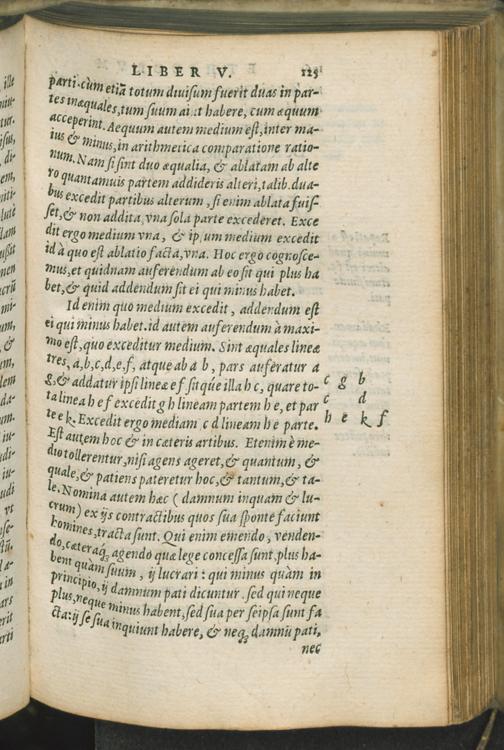 LIBER V. 125
parti. cùm etiā totum diuisum fuerit duas in par-
tes inæquales, tum suum aiunt habere, cum æquum
acceperint. Aequum autem medium est, inter ma-
ius & minus, in arithmetica comparatione ratio-
num. Nam si sint duo æqualia, & ablatam ab alte
ro quantamuis partem addideris alteri, talib. dua-
bus excedit partibus alterum, si enim ablata fuis-
set, & non addita, vna sola parte excederet. Exce
dit ergo medium vna, & ipsum medium excedit
id à quo est ablatio facta, vna. Hoc ergo cognosce-
mus, et quidnam auferendum ab eo sit qui plus ha
bet, & quid addendum sit ei qui minus habet.
Id enim quo medium excedit, addendum est
ei qui minus habet. id autem auferendum à maxi-
mo est, quo exceditur medium. Sint æquales lineæ
tres, a, b, c, d, e, f, atque ab a b, pars auferatur a
g, & addatur ipsi lineæ e f sitque illa h c, quare to-
ta linea h e f excedit g h lineam partem h e, et par
te e k. Excedit ergo mediam c d lineam h e parte.
Est autem hoc & in cæteris artibus. Etenim è me-
dio tollerentur, nisi agens ageret, & quantum, &
quale, & patiens pateretur hoc, & tantum, & ta-
le. Nomina autem hæc (damnum inquam & lu-
crum) ex ijs contractibus quos sua sponte faciunt
homines, tracta sunt. Qui enim emendo, venden-
do, cæteraq́; agendo quæ lege concessa sunt, plus ha-
bent quàm suum, ij lucrari: qui minus quàm in
principio, ij damnum pati dicuntur. sed qui neque
plus, neque minus habent, sed sua per seipsa sunt fa
cta: ij se sua inquiunt habere, & neq; damnū pati,
nec
c g b
c d
h e k f